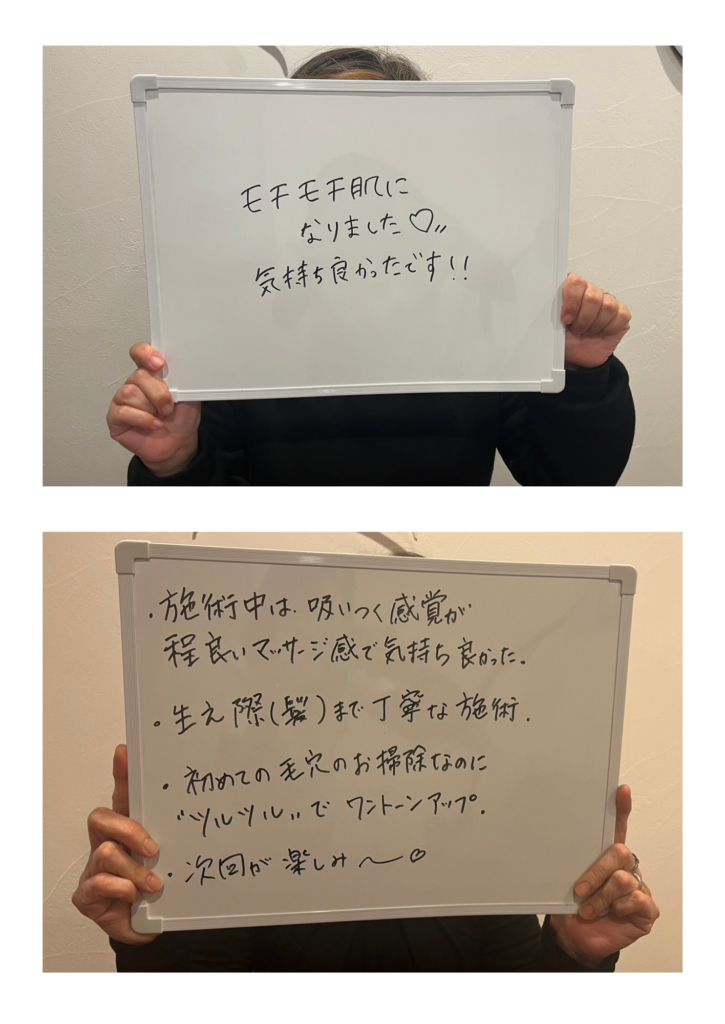 モチモチ肌に
なりました♡〃
気持ち良かったです!!
・施術中は、吸いつく感覚が
程良いマッサージ感で気持ち良かった。
・生え際(髪)まで丁寧な施術.
・初めての毛穴のお掃除なのに
"ツルツル"で ワントーンアップ。
・次回が楽しみ〜♡